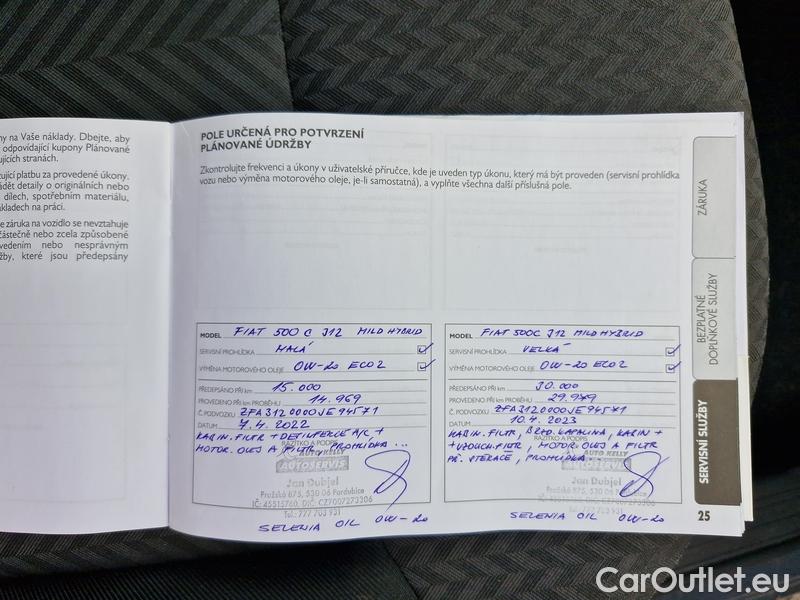 ny na Vaše náklady. Dbejte, aby
odpovídající kupony Plánované
ujících stranách.
ující platbu za provedené úkony.
ádět detaily o originálních nebo
dílech, spotřebním materiálu,
ákladech na práci.
e záruka na vozidlo se nevztahuje
částečně nebo zcela způsobené
ovedením nebo nesprávným
žby, které jsou předepsány
POLE URČENÁ PRO POTVRZENÍ
PLÁNOVANÉ ÚDRŽBY
Zkontrolujte frekvenci a úkony v uživatelské příručce, kde je uveden typ úkonu, který má být proveden (servisní prohlídka
vozu nebo výměna motorového oleje, je-li samostatná), a vyplňte všechna další příslušná pole.
MODEL FIAT 500 C 312 MILD HYBRID
SERVISNÍ PROHLÍDKA MALÁ
VÝMĚNA MOTOROVÉHO OLEJE 0W-20 ECO2
PŘEDEPSÁNO PŘI km 15.000
PROVEDENO PŘI km PROBĚHU 14.969
Č. PODVOZKU ZFA3120000JE94571
DATUM 7.4.2022
KABIN. FILTR + DETILFEKCE A/C +
MOTOR. OLEJ A FILTR, PROHLÍDKA...
RAZÍTKO A PODPIS
AUTO KELLY
AUTOSERVIS
Jan Dubjel
Pražská 875, 530 06 Pardubice
IČ: 45515760, DIČ: CZ7007273206
Tel.: 777 703 931
SELENIA OIL 0W-20
MODEL FIAT 500C 312 MILD HYBRID
SERVISNÍ PROHLÍDKA VELKÁ
VÝMĚNA MOTOROVÉHO OLEJE 0W-20 ECO2
PŘEDEPSÁNO PŘI km 30.000
PROVEDENO PŘI km PROBĚHU 29.979
Č. PODVOZKU ZFA3120000JE94571
DATUM 10.4.2023
KABIN. FILTR, BRZD. KAPALINA, KABIN +
+ VZDUCH. FILTR, MOTOR. OLEJ A FILTR
PŘ. STĚRAČE, PROHLÍDKA...
RAZÍTKO A PODPIS
AUTO KELLY
AUTOSERVIS
Jan Dubjel
Pražská 875, 530 06 Pardubice
Tel.: 777 703 931
SELENIA OIL 0W-20
ZÁRUKA
BEZPLATNÉ
DOPLŇKOVÉ SLUŽBY
SERVISNÍ SLUŽBY
25
CarOutlet.eu